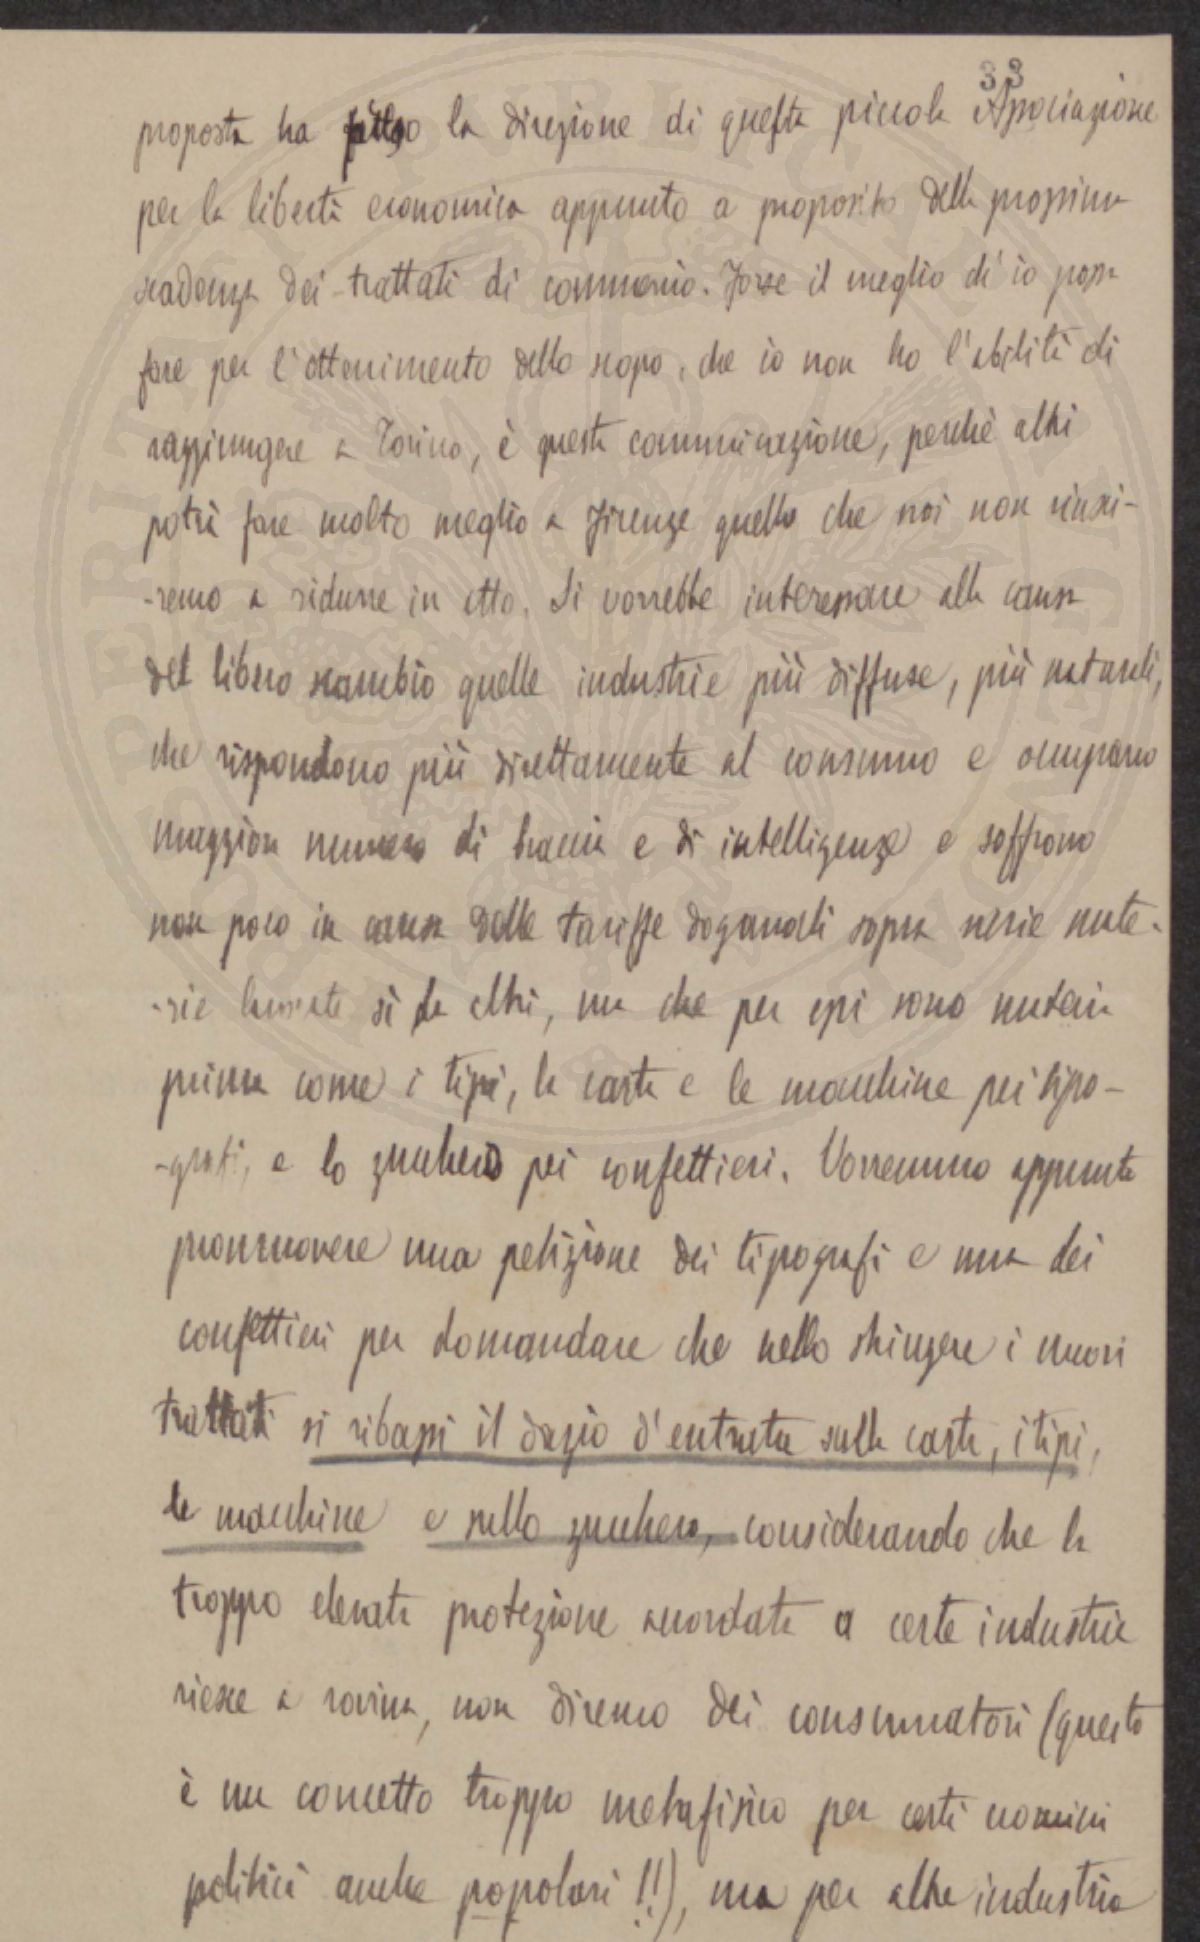 33
proposta ha fatto la direzione di questa piccola Associazione
per la libertà economica appunto a proposito della prossima
scadenza dei trattati di commercio. Forse il meglio di io possa
fare per l'ottenimento dello scopo, che io non ho l'abilità di
raggiungere a Torino, è questa communicazione, perchè altri
potrà fare molto meglio a Firenze quello che noi non riusci-
-remo a ridurre in atto. Si vorrebbe interessare alla causa
del libero scambio quelle industrie più diffuse, più naturali,
che rispondono più direttamente al consumo e occupano
maggior numero di braccia e di intelligenze e soffrono
non poco in causa delle tariffe doganali sopra merie mate-
-rie lavorate sì da altri, ma che per essi sono materia
prima come i tipi, la carta e le macchine pei tipo-
-grafi, e lo zucchero pei confettieri. Vorremmo appunto
promuovere una petizione dei tipografi e una dei
confettieri per domandare che nello stringere i nuovi
trattati si ribassi il dazio d'entrata sulla carta, i tipi,
le macchine e sullo zucchero, considerando che la
troppo elevata protezione accordata a certe industrie
riesce a rovina, non diremo dei consumatori (questo
è un concetto troppo metafisico per certi uomini
politici anche popolari!!), ma per altre industrie